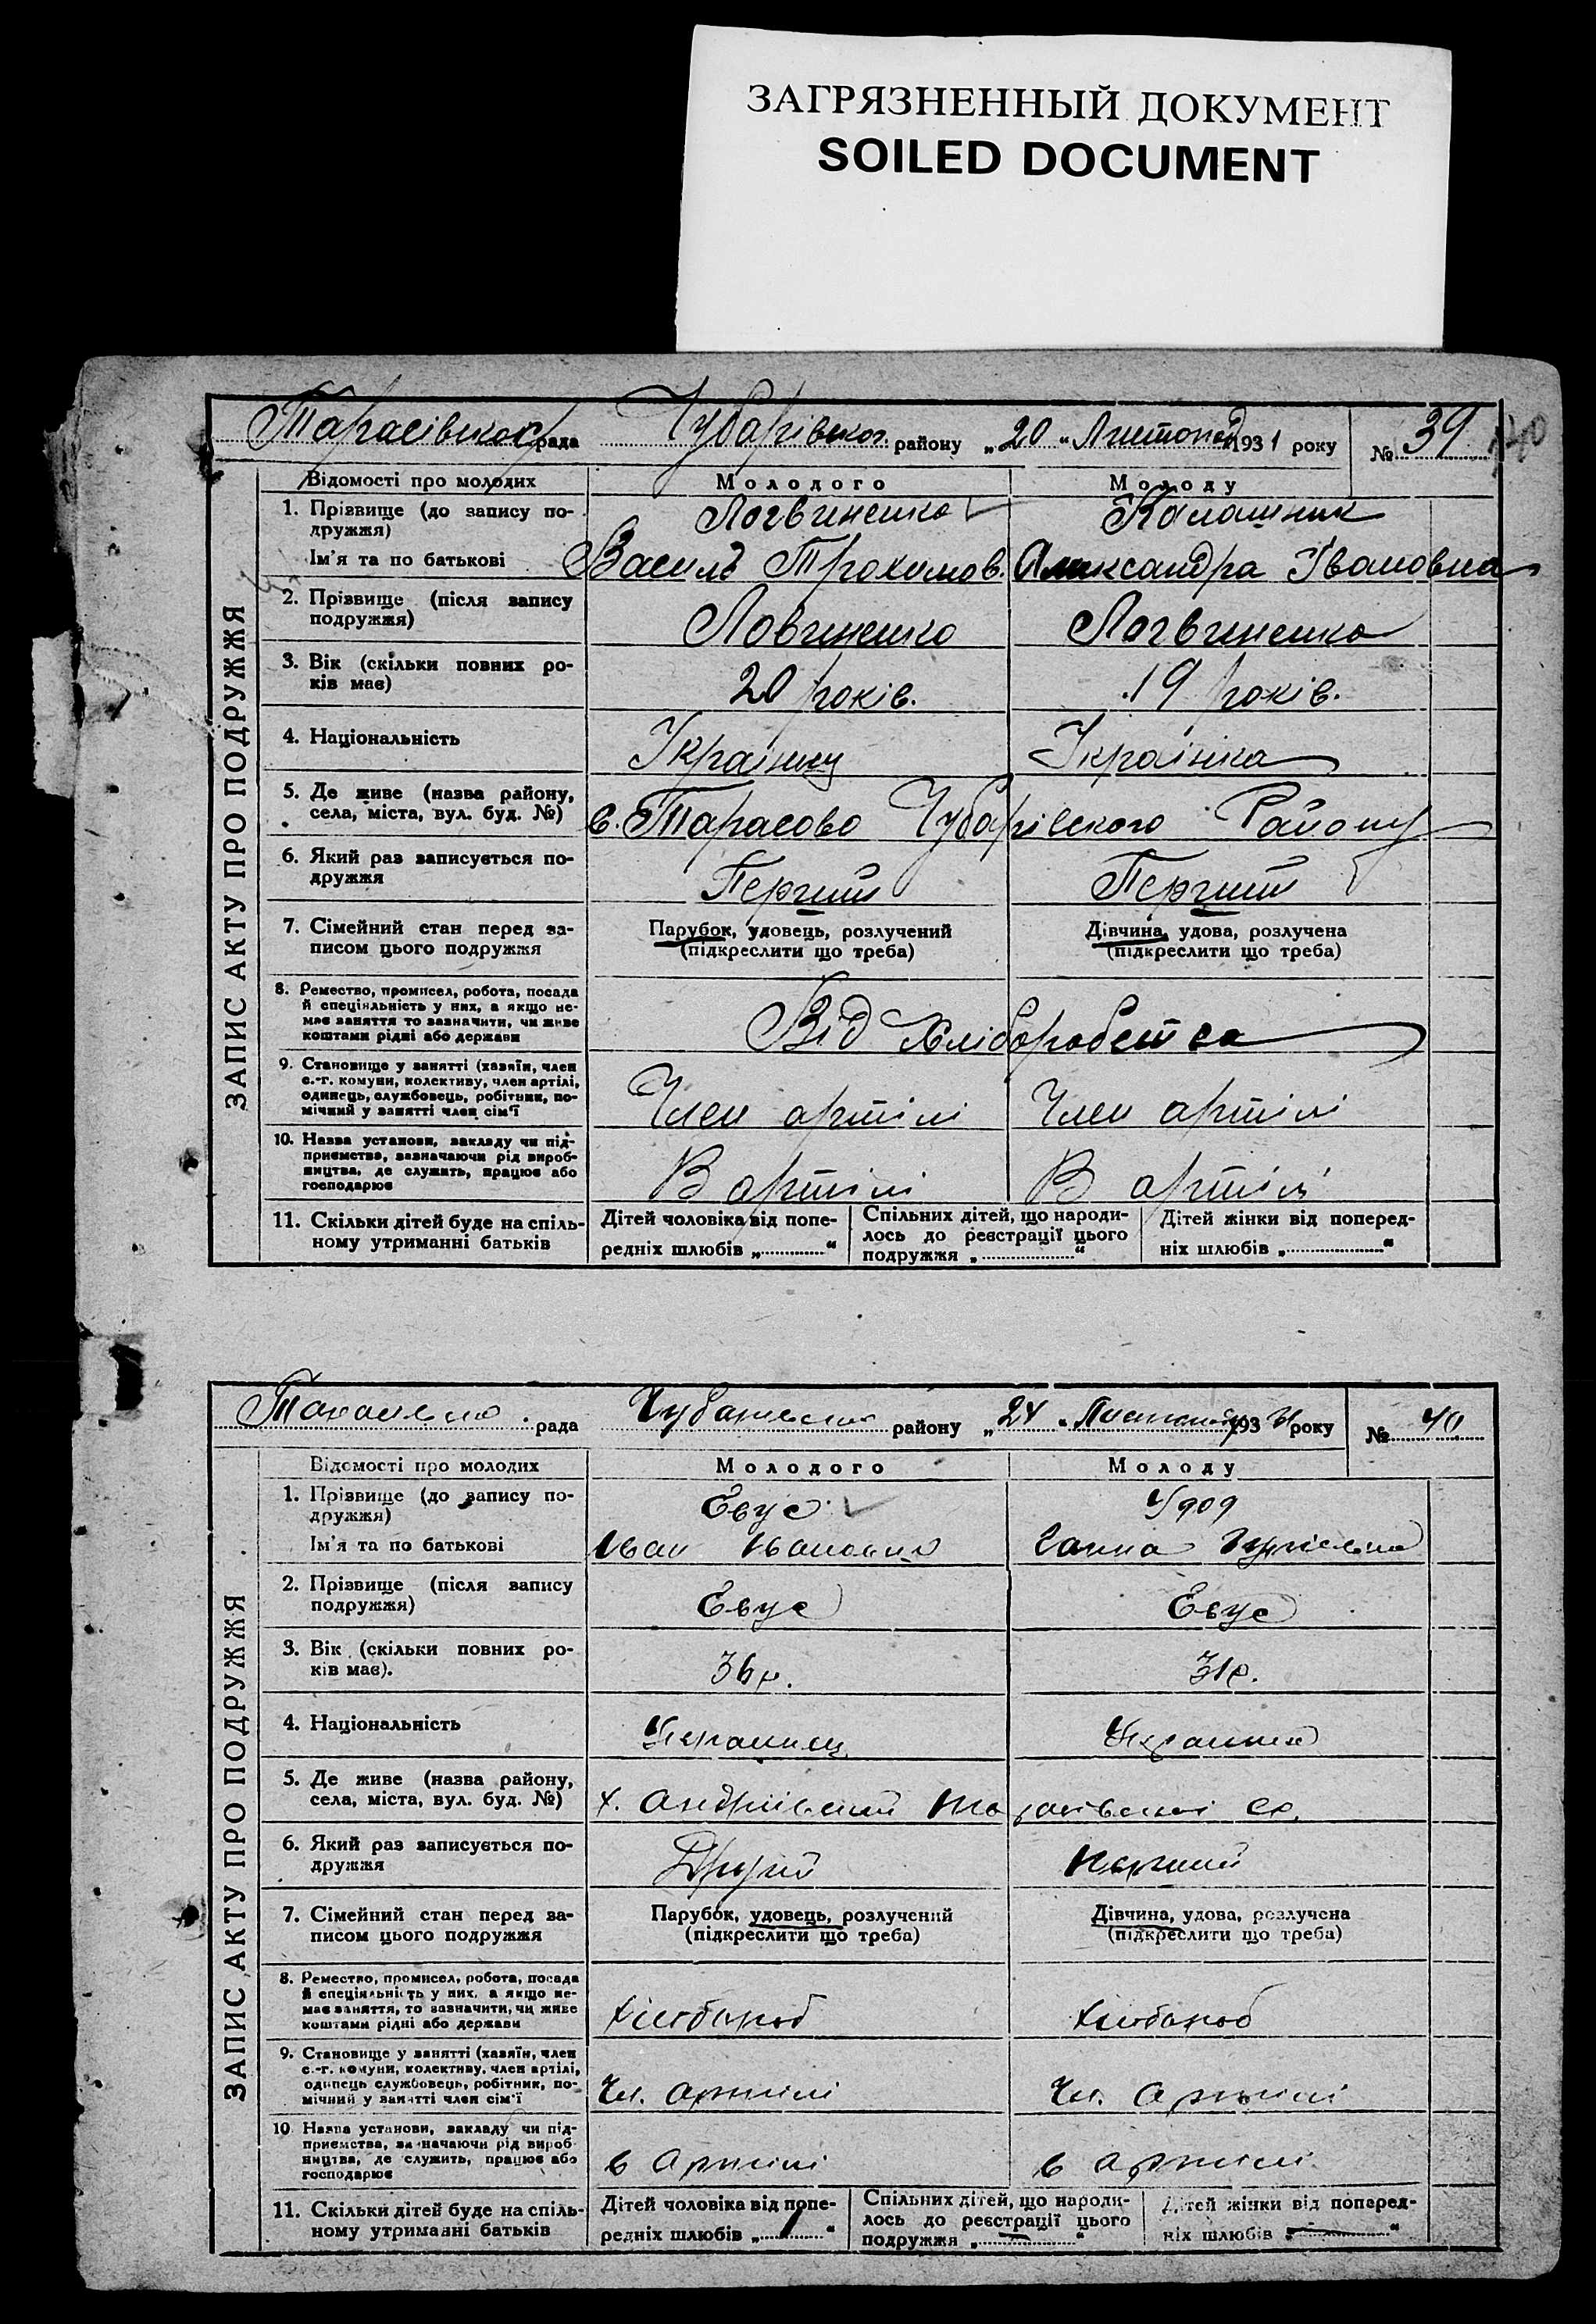 ЗАГРЯЗНЕННЫЙ ДОКУМЕНТ
SOILED DOCUMENT
рада Чубарівськ. району „20“ Листопад 1931 року № 39
ЗАПИС АКТУ ПРО ПОДРУЖЖЯ
Відомості про молодих Молодого Молоду
1. Прізвище (до запису по-
дружжя) Логвиненко Калашник
Ім'я та по батькові Василь Прохимов. Александра Івановна
2. Прізвище (після запису
подружжя) Ловиненко Логвиненко
3. Вік (скільки повних ро-
ків має) 20 років. 19 років.
4. Національність Українец Українка
5. Де живе (назва району,
села, міста, вул. буд. №) с. Тарасово Чубарівского Району
6. Який раз записується по-
дружжя Перший Перший
7. Сімейний стан перед за-
писом цього подружжя
Парубок, удовець, розлучений Дівчина, удова, розлучена
(підкреслити що треба) (підкреслити що треба)
8. Ремество, промисел, робота, посада
й спеціяльність у них, а якщо не-
має заняття то зазначити, чи живе
коштами рідні або держави Від хліборобства
9. Становище у занятті (хазяїн, член
с.-г. комуни, колективу, член артілі,
одинець, службовець, робітник, по-
мічний у занятті член сім'ї Член артілі Член артілі
10. Назва установи, закладу чи під-
приємства, зазначаючи рід вироб-
ництва, де служить, працює або
господарює В артілі В артілі
11. Скільки дітей буде на спіль-
ному утриманні батьків
Дітей чоловіка від попе-
редніх шлюбів „ “
Спільних дітей, що народи-
лось до реєстрації цього
подружжя „ “
Дітей жінки від поперед-
ніх шлюбів „ “
рада району „24“ 193 року № 40
ЗАПИС АКТУ ПРО ПОДРУЖЖЯ
Відомості про молодих Молодого Молоду
1. Прізвище (до запису по-
дружжя) Евус
Ім'я та по батькові Иван Иванович Ганна
2. Прізвище (після запису
подружжя) Евус Евус
3. Вік (скільки повних ро-
ків має). 36 р. 31 р.
4. Національність Украинец
5. Де живе (назва району,
села, міста, вул. буд. №) х. Андріївский
6. Який раз записується по-
дружжя Другий Перший
7. Сімейний стан перед за-
писом цього подружжя
Парубок, удовець, розлучений Дівчина, удова, розлучена
(підкреслити що треба) (підкреслити що треба)
8. Ремество, промисел, робота, посада
й спеціяльність у них, а якщо не-
має заняття, то зазначити, чи живе
коштами рідні або держави Хлібороб Хлібороб
9. Становище у занятті (хазяїн, член
с.-г. комуни, колективу, член артілі,
одинець службовець, робітник, по-
мічний у занятті член сім'ї Чл. артілі Чл. артілі
10 Назва установи, закладу чи під-
приємства, зазначаючи рід вироб-
ництва, де служить, працює або
господарює в артілі в артілі
11. Скільки дітей буде на спіль-
ному утриманні батьків
Дітей чоловіка від попе-
редніх шлюбів „ 1 “
Спільних дітей, що народи-
лось до реєстрації цього
подружжя „ — “
Дітей жінки від поперед-
ніх шлюбів „ — “